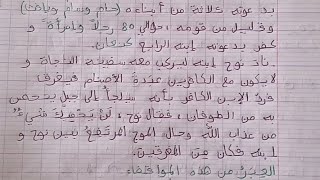 بدعوته ثلاثة من أبناءه (حام وسام ويافث)
وقليل من قومه، حوالي 80 رجلاً وامرأة و
كفر بدعوته إبنه الرابع كنعان.
ناد نوح إبنه ليركب معه سفينة النجاة و
لا يكون مع الكافرين عبدة الأصنام فيغرق
فرد الإبن الكافر بأنه سيلجأ إلى جبل يحتمي
به من الطوفان، فقال نوح، لن يحميك شيء
من عذاب الله وحال الموج المرتفع بين نوح و
إبنه فكان من المغرقين.
العبر من هذه المواقف